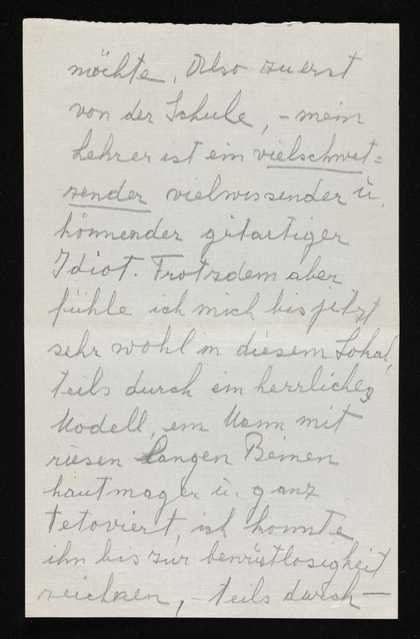 möchte. Also zuerst
von der Schule, – mein
Lehrer ist ein vielschwat=
zender vielwissender u.
könnender gutartiger
Idiot. Trotzdem aber
fühle ich mich bis jetzt
sehr wohl in diesem Lokal,
teils durch ein herrliches
Modell, ein Mann mit
riesen langen Beinen
hautmager u. ganz
tetoviert, ich konnte
ihn bis zur bewüstlosigkeit
zeichnen, – teils durch –